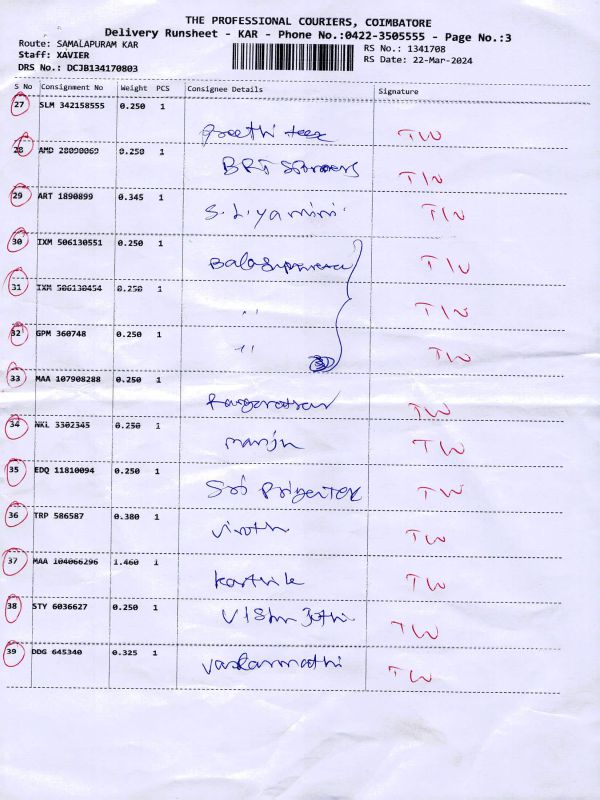 THE PROFESSIONAL COURIERS, COIMBATORE
Delivery Runsheet - KAR - Phone No.:0422-3505555 - Page No.:3
Route: SAMALAPURAM KAR RS No.: 1341708
Staff: XAVIER RS Date: 22-Mar-2024
DRS No.: DCJB134170803
S No Consignment No Weight PCS Consignee Details Signature
27 SLM 342158555 0.250 1
Preethi tex TW
28 AMD 28090069 0.250 1
BRT TW
29 ART 1890899 0.345 1
S. L. yamini TW
30 IXM 506130551 0.250 1
TW
31 IXM 506130454 0.250 1
" TW
32 GPM 360748 0.250 1
" TW
33 MAA 107908288 0.250 1
TW
34 NKL 3302345 0.250 1
manju TW
35 EDQ 11810094 0.250 1
Sri TW
36 TRP 586587 0.380 1
TW
37 MAA 104066296 1.460 1
karthik TW
38 STY 6036627 0.250 1
TW
39 DDG 645340 0.325 1
TW